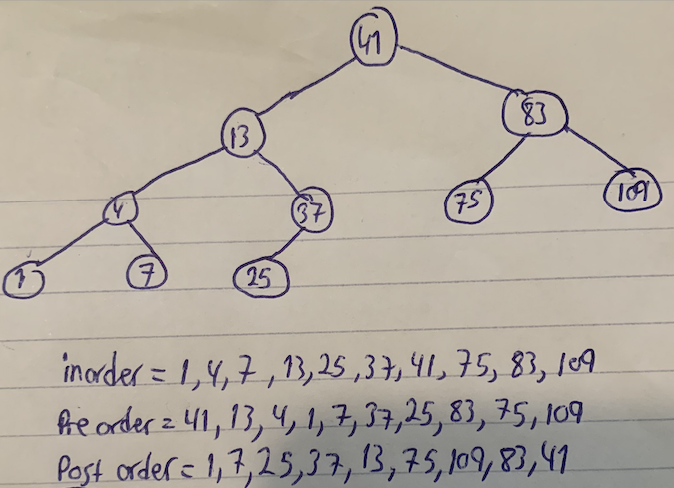 41
13 83
4 37 75 109
1 7 25
inorder = 1, 4, 7, 13, 25, 37, 41, 75, 83, 109
Pre order = 41, 13, 4, 1, 7, 37, 25, 83, 75, 109
Post order = 1, 7, 25, 37, 13, 75, 109, 83, 41